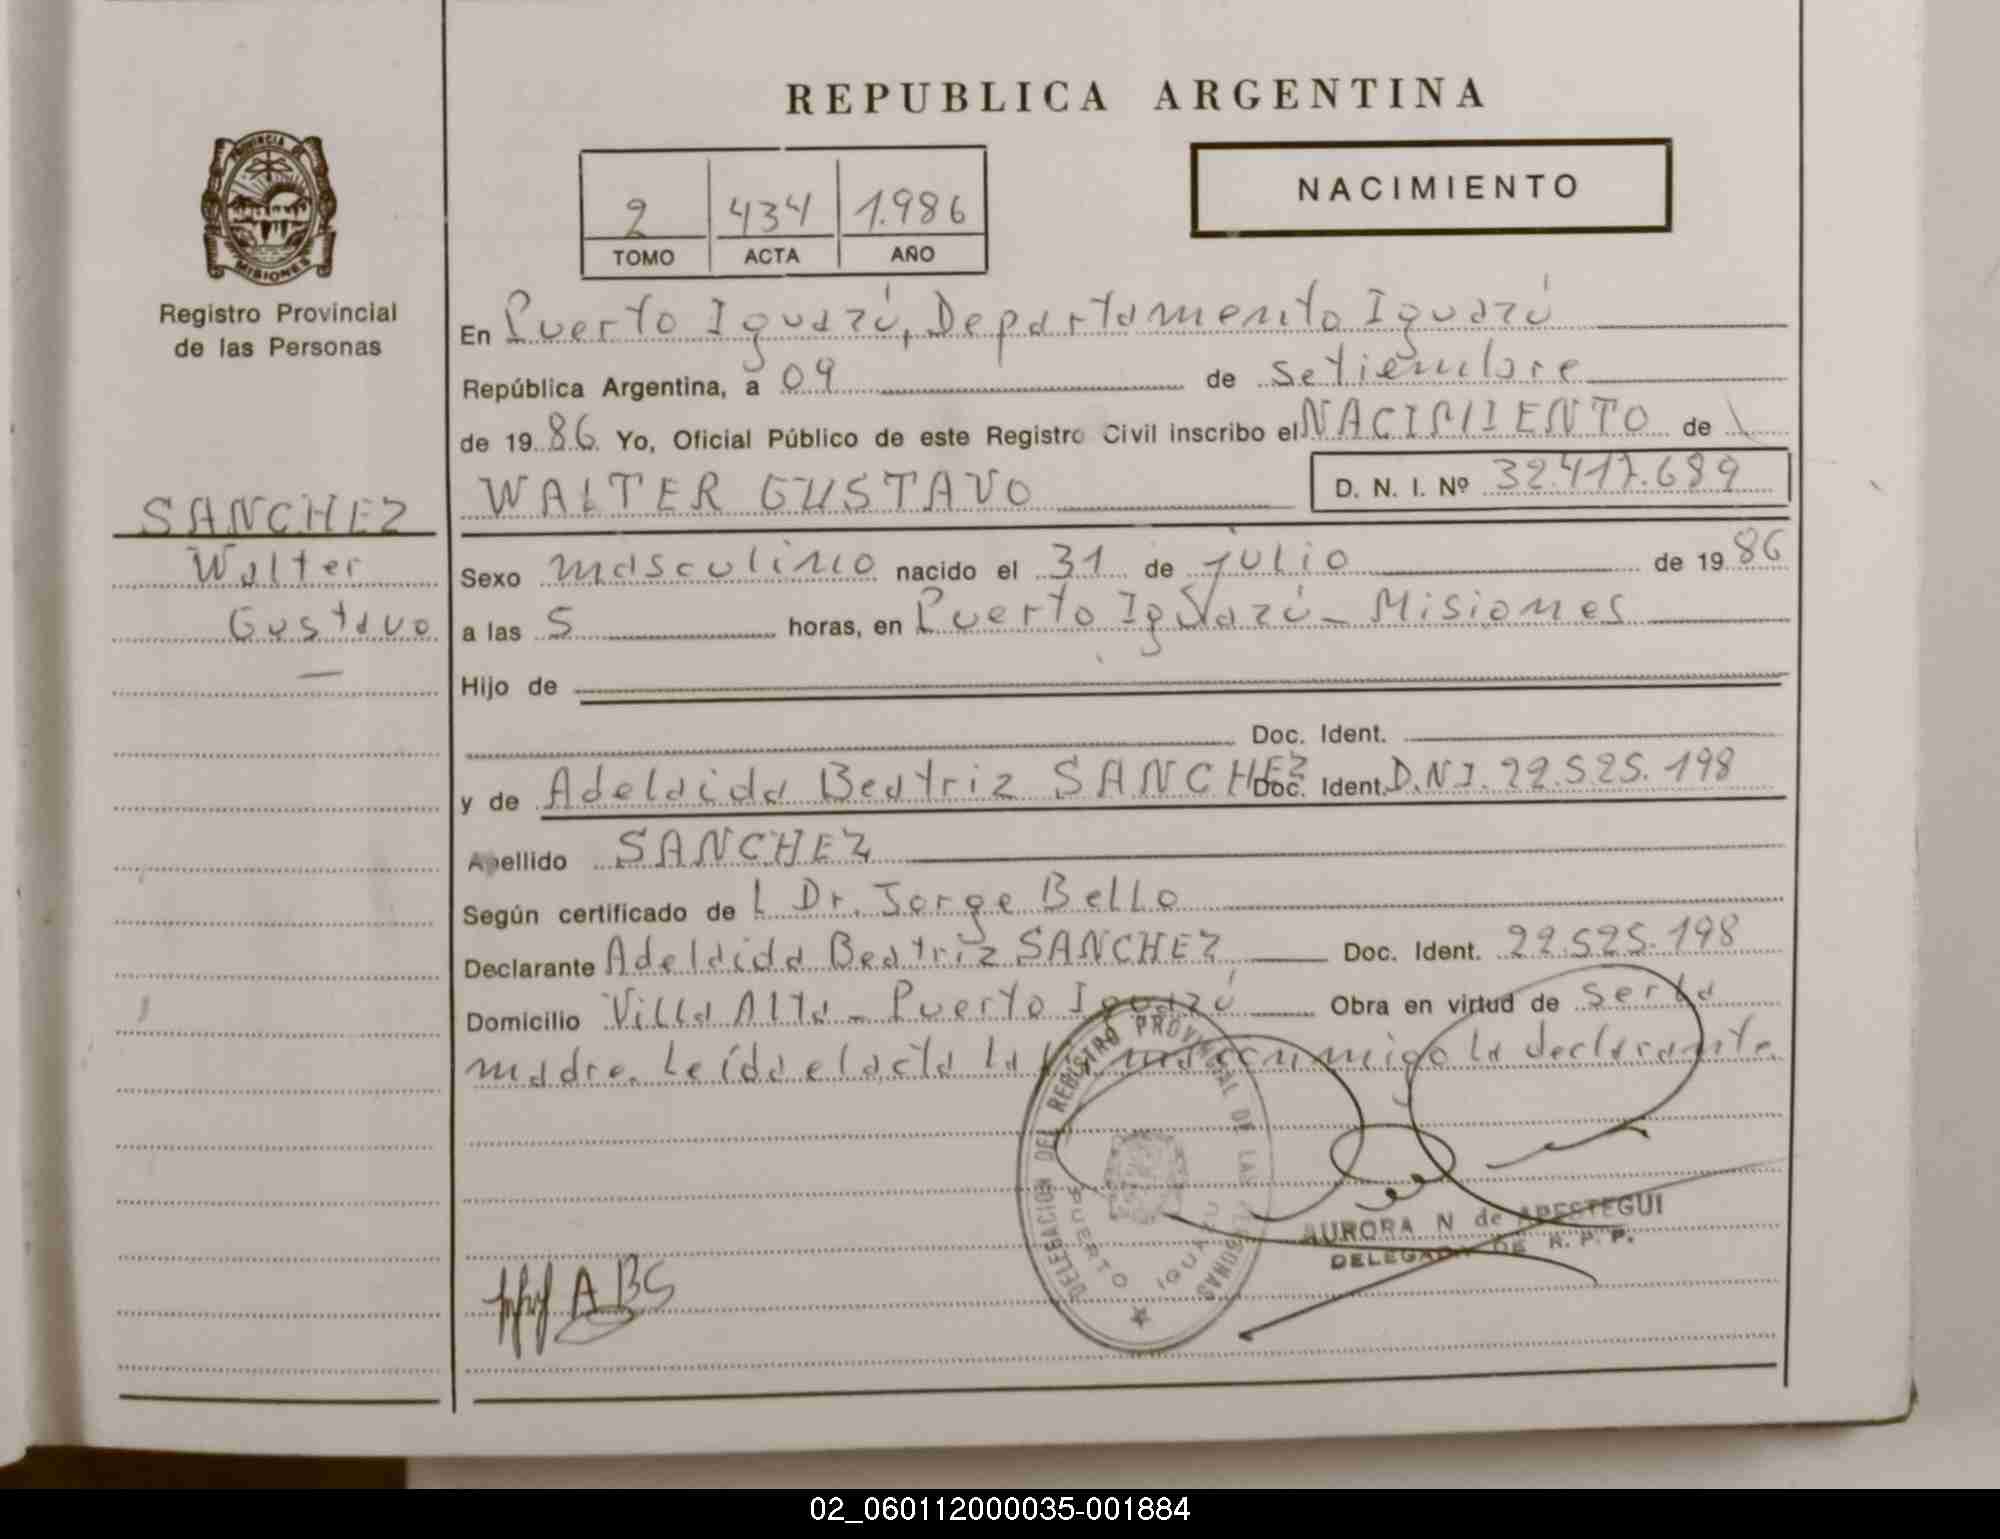 REPUBLICA ARGENTINA
PROVINCIA DE
MISIONES
Registro Provincial
de las Personas
2 434 1.986
TOMO ACTA AÑO
NACIMIENTO
En Puerto Iguazú, Departamento Iguazú
República Argentina, a 09 de setiembre
de 1986 Yo, Oficial Público de este Registro Civil inscribo el NACIMIENTO de
WALTER GUSTAVO D. N. I. Nº 32.417.689
SANCHEZ
Walter
Gustavo
Sexo masculino nacido el 31 de julio de 1986
a las 5 horas, en Puerto Iguazú - Misiones
Hijo de
Doc. Ident.
y de Adelaida Beatriz SANCHEZ Doc. Ident. D.N.I. 22.525.198
Apellido SANCHEZ
Según certificado de l Dr. Jorge Bello
Declarante Adelaida Beatriz SANCHEZ Doc. Ident. 22.525.198
Domicilio Villa Alta - Puerto Iguazú Obra en virtud de ser la
madre. Leída el acta la firma conmigo la declarante.
DELEGACION DEL REGISTRO PROVINCIAL DE LAS PERSONAS
PUERTO IGUAZU
AURORA N de APESTEGUI
DELEGADA DE R. P. P.
ABS
02_060112000035-001884